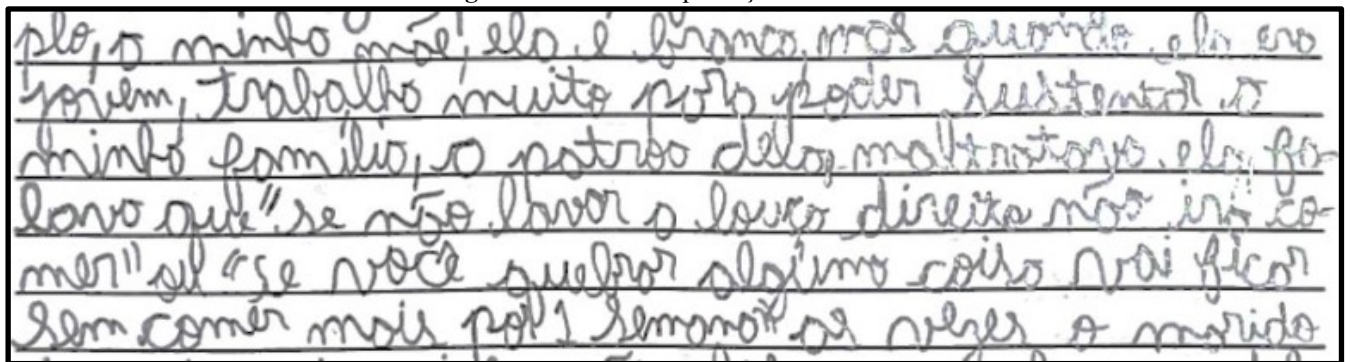 plo, a minha mãe, ela é branca, mas quando ela era
jovem, trabalho muito para poder sustentar a
minha família, o patrão dela, maltratava ela, fa-
lava que "se não lavar a louça direito não irá co-
mer" ou "se você quebrar alguma coisa vai ficar
sem comer mais por 1 semana" as vezes o marido